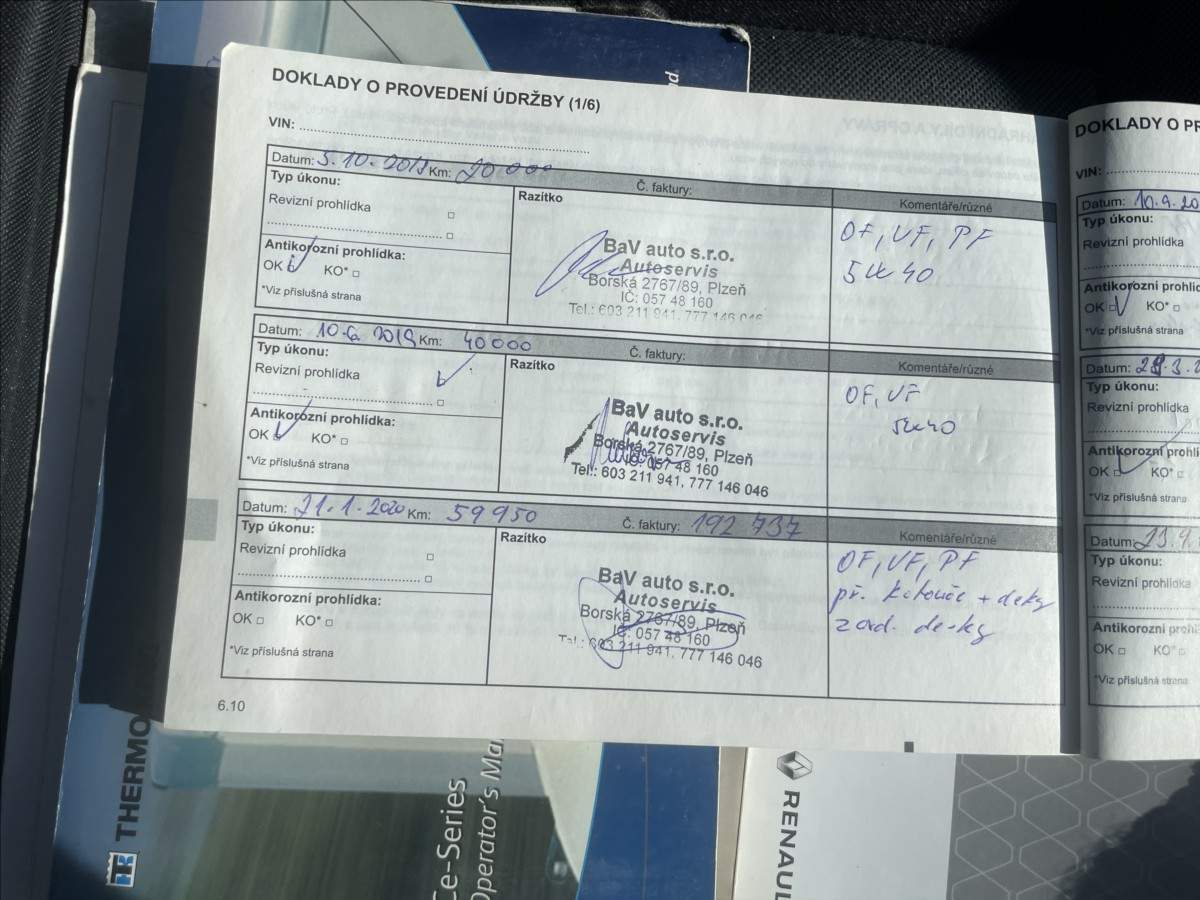 DOKLADY O PROVEDENÍ ÚDRŽBY (1/6)
VIN:
Datum: 5.10.2018 Km: 20000
Č. faktury:
Komentáře/různé
Typ úkonu:
Revizní prohlídka
Antikorozní prohlídka:
OK KO*
*Viz příslušná strana
Razítko
BaV auto s.r.o.
Autoservis
Borská 2767/89, Plzeň
IČ: 057 48 160
Tel.: 603 211 941, 777 146 046
OF, VF, PF
5W40
Datum: 10.6 2019 Km: 40000
Č. faktury:
Komentáře/různé
Typ úkonu:
Revizní prohlídka
Antikorozní prohlídka:
OK KO*
*Viz příslušná strana
Razítko
BaV auto s.r.o.
Autoservis
Borská 2767/89, Plzeň
IČ: 057 48 160
Tel.: 603 211 941, 777 146 046
OF, VF
5W40
Datum: 21.1.2020 Km: 59950
Č. faktury: 192737
Komentáře/různé
Typ úkonu:
Revizní prohlídka
Antikorozní prohlídka:
OK KO*
*Viz příslušná strana
Razítko
BaV auto s.r.o.
Autoservis
Borská 2767/89, Plzeň
IČ: 057 48 160
Tel.: 603 211 941, 777 146 046
OF, VF, PF
př. kotouče + desky
zad. desky
6.10
DOKLADY O PR
VIN:
Datum: 10.9.20
Typ úkonu:
Revizní prohlídka
Antikorozní prohlíd
OK KO*
*Viz příslušná strana
Datum:
Typ úkonu:
Revizní prohlídka
Antikorozní prohlí
OK KO*
*Viz příslušná strana
Datum:
Typ úkonu:
Revizní prohlídka
Antikorozní prohlí
OK KO*
*Viz příslušná strana
THERMO
Ce-Series
Operator's Ma
RENAUL